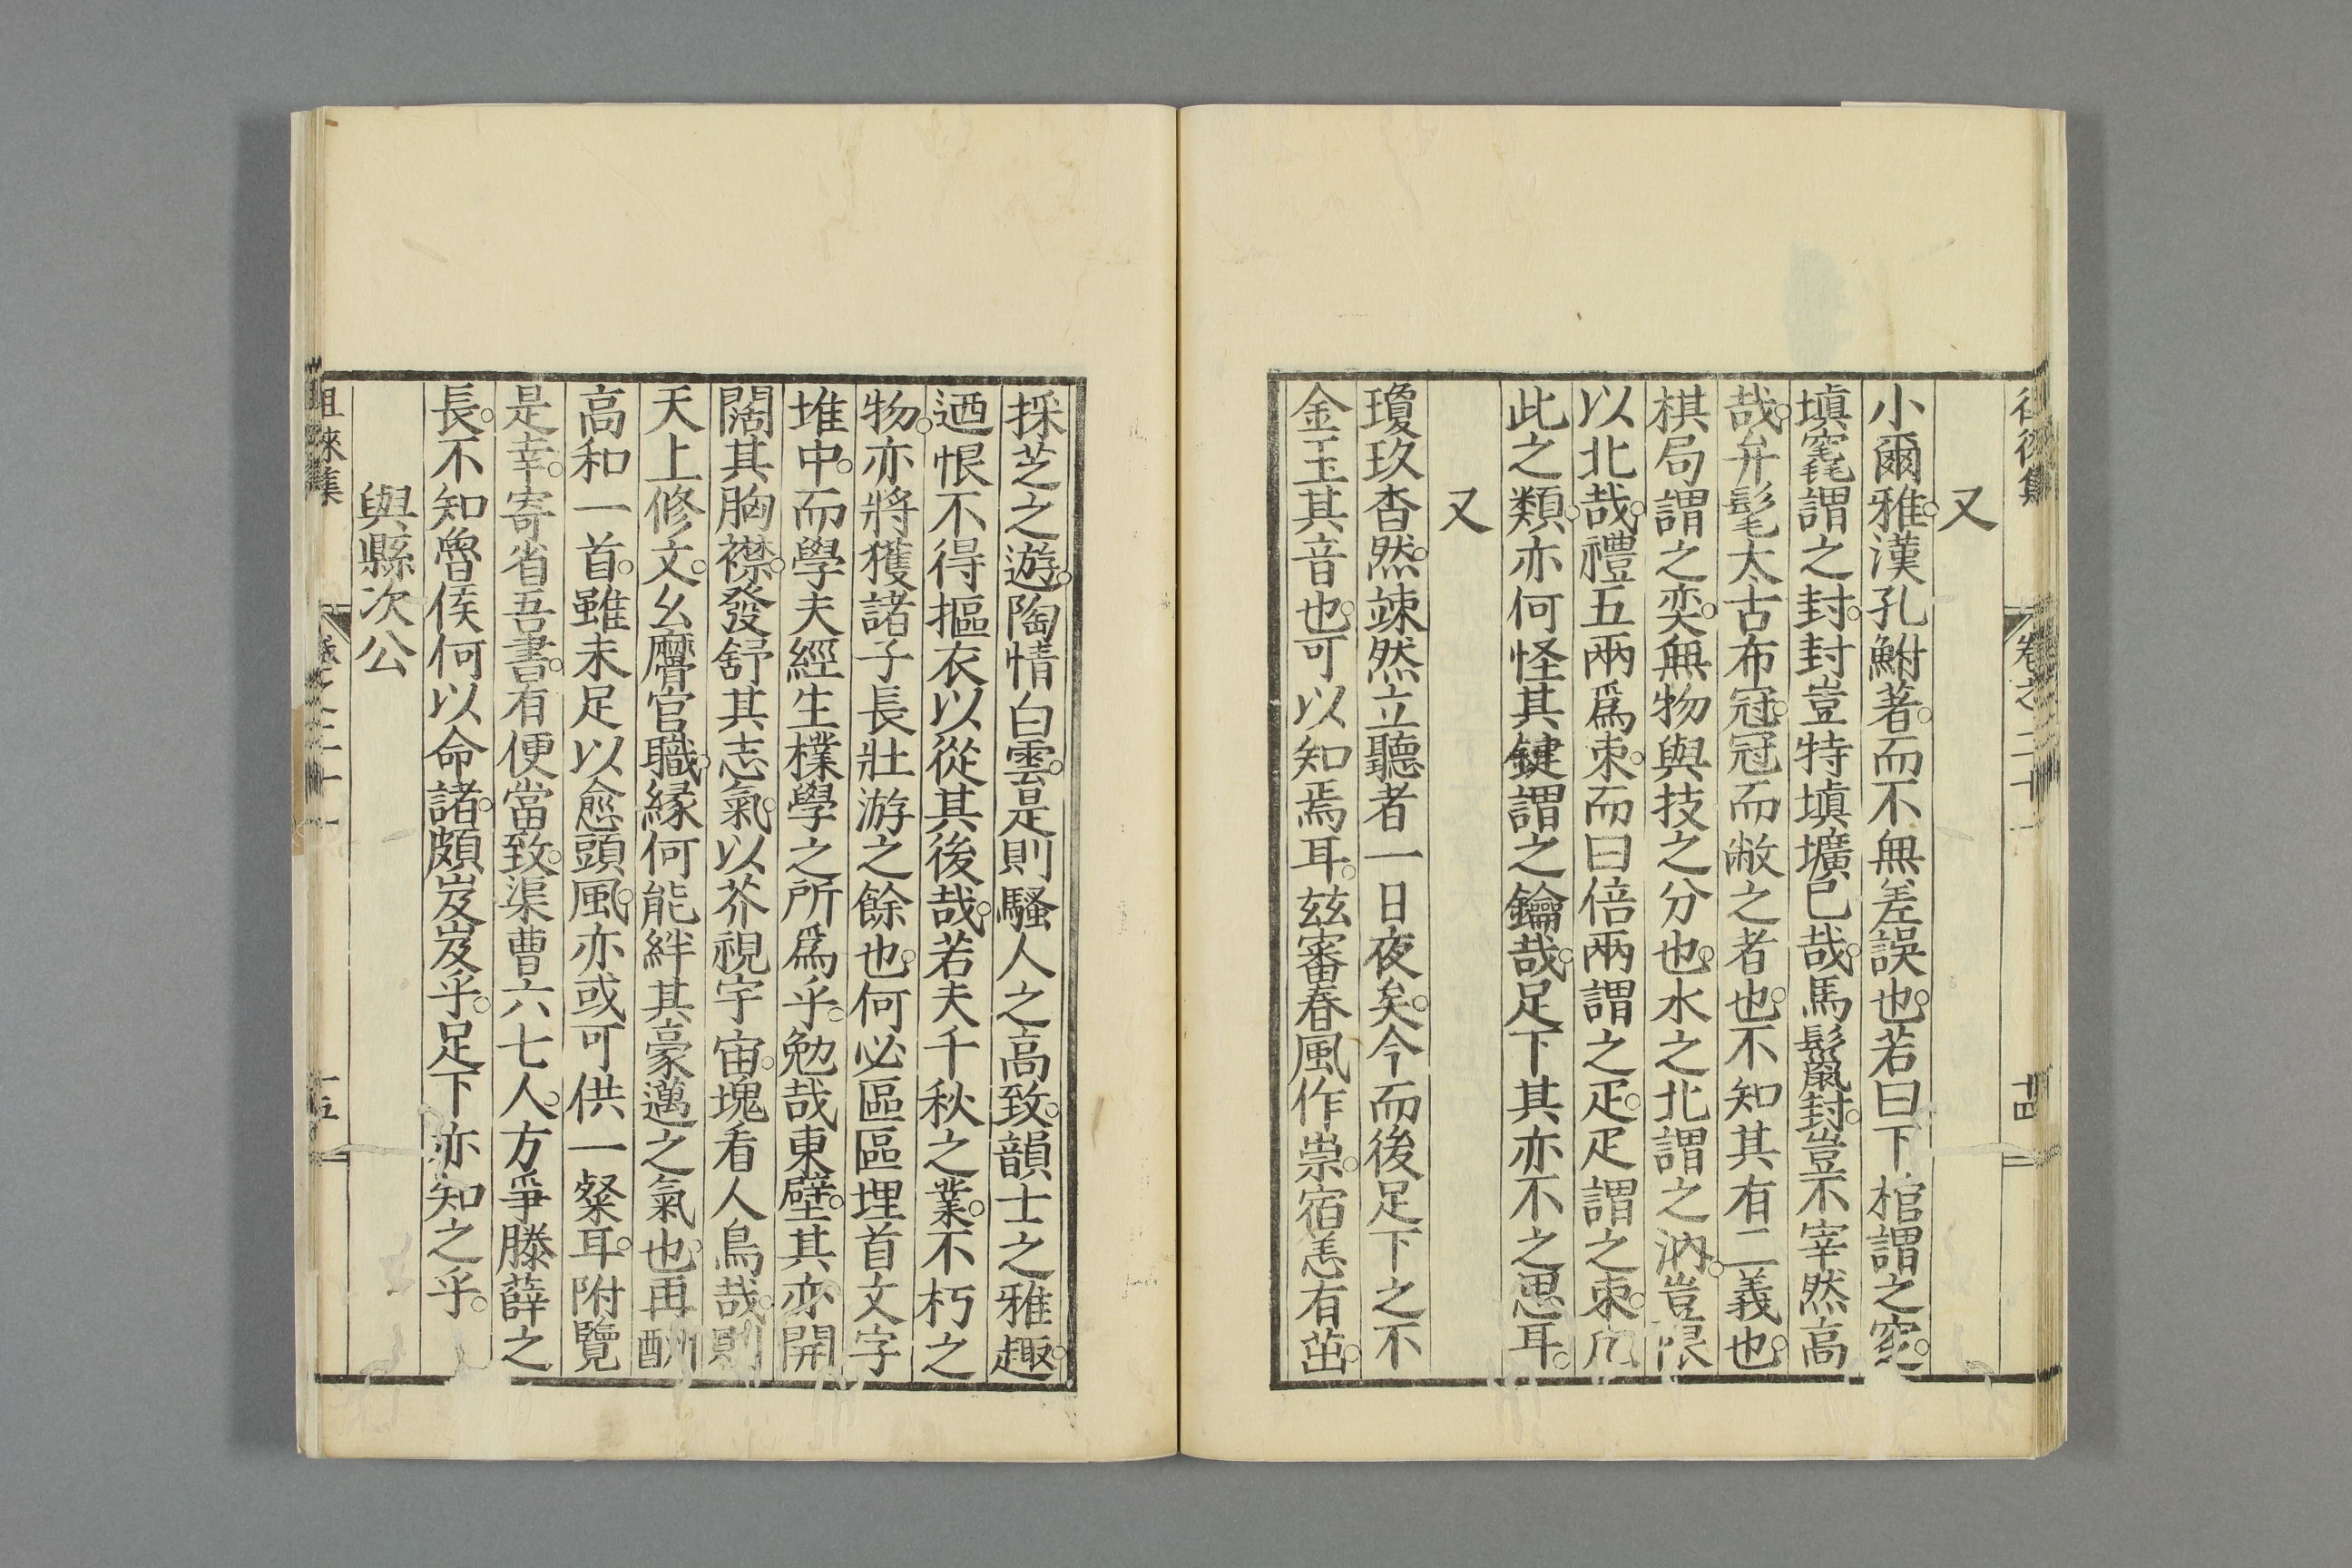 徂徠集
卷之二十一
十四
又
小爾雅。漢孔鮒著。而不無差誤也。若曰下棺謂之窆。
塡窀謂之封。封豈特塡壙已哉。馬鬛封。豈不宰然高
哉。弁髦太古布冠。冠而敝之者也。不知其有二義也。
棋局謂之奕。無物與技之分也。水之北謂之汭。豈限
以北哉。禮五兩爲束。而曰倍兩謂之疋。疋謂之束。凡
此之類。亦何怪其鍵謂之鑰哉。足下其亦不之思耳。
又
瓊玖杳然。竦然立聽者一日夜矣。今而後足下之不
金玉其音也。可以知焉耳。茲審春風作祟。宿恙有茁。
採芝之遊。陶情白雲。是則騷人之高致。韻士之雅趣。
迺恨不得摳衣以從其後哉。若夫千秋之業。不朽之
物。亦將獲諸子長壯游之餘也。何必區區埋首文字
堆中。而學夫經生樸學之所爲乎。勉哉東壁。其亦開
闊其胸襟。發舒其志氣。以芥視宇宙。塊看人鳥哉。則
天上修文。幺麿官職。緣何能絆其豪邁之氣也。再酬
高和一首。雖未足以愈頭風。亦或可供一粲耳。附覽
是幸。寄省吾書。有便當致。渠曹六七人。方爭滕薛之
長。不知魯侯何以命諸。頗岌岌乎。足下亦知之乎。
與縣次公
徂徠集
卷之二十一
十五